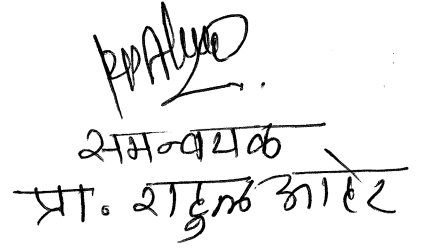 समन्वयक
प्रा. राहुल आहेर